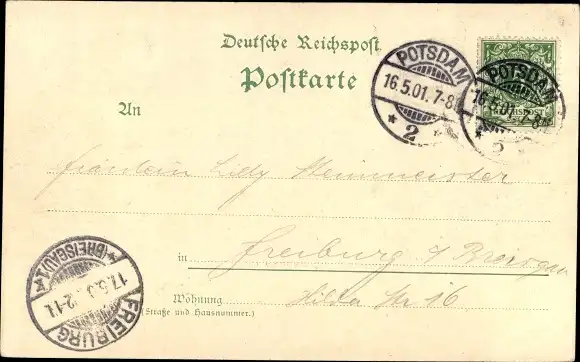 Deutsche Reichspost
Postkarte
POTSDAM
16.5.01. 7-8
* 2 *
POTSDAM
16.5.01. 7-8
An
Fräulein Lilly Steinmeister
in Freiburg i/ Breisgau
Wohnung Hilda Str 16
(Straße und Hausnummer.)
FREIBURG
17.5.
* (BREISGAU) 1 *